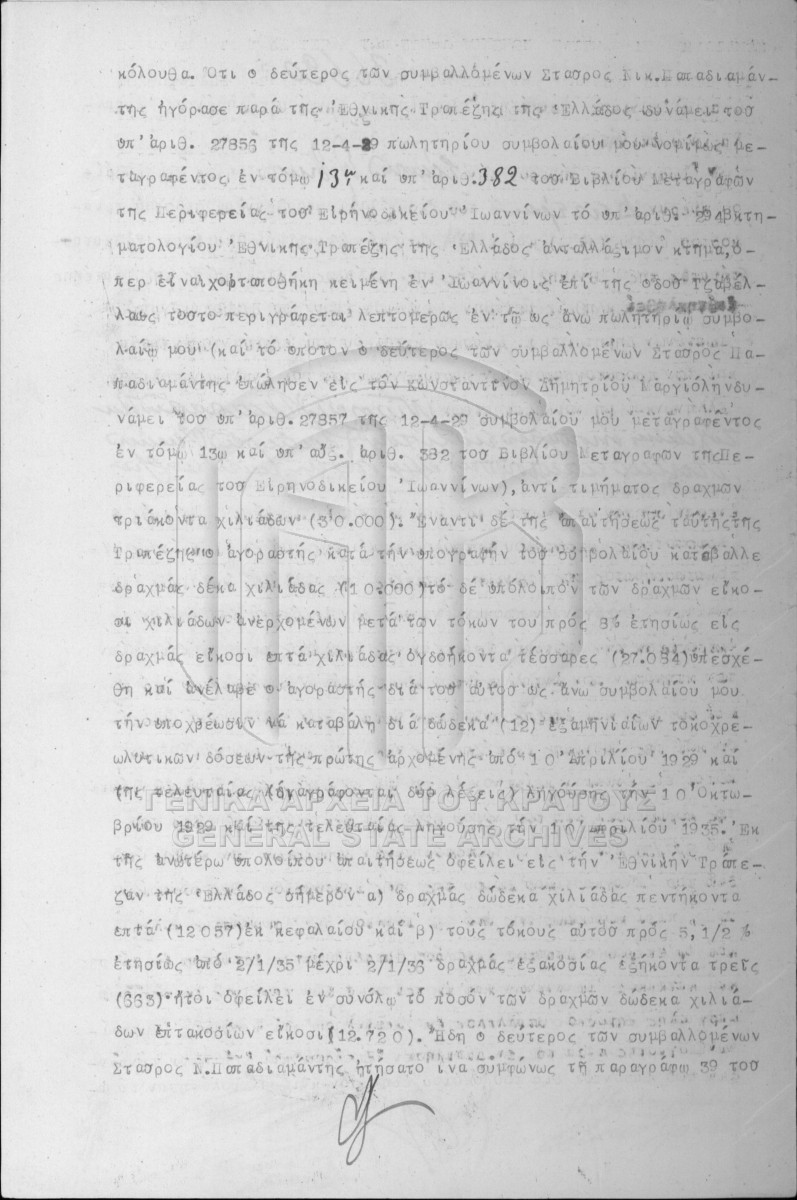 κόλουθα. Ότι ο δεύτερος των συμβαλλομένων Σταῦρος Νικ. Παπαδιαμάν-
της ἠγόρασε παρά της Ἐθνικης Τραπέζης της Ἑλλάδος δυνάμει τοῦ
υπ' ἀριθ. 27856 της 12-4-29 πωλητηρίου συμβολαίου μου νομίμως με-
ταγραφέντος ἐν τόμω 137 καί υπ' ἀριθ. 382 τοῦ Βιβλίου Μεταγραφών
της Περιφερείας τοῦ Εἰρηνοδικείου Ἰωαννίνων τό υπ' ἀριθ. 294 κτη-
ματολογίου Ἐθνικης Τραπέζης της Ἑλλάδος ἀνταλλάξιμον κτημα, ό-
περ εἶναι χορταποθήκη κειμένη ἐν Ἰωαννίνοις ἐπί της οδοῦ Τζαβέλ-
λας τοῦτο περιγράφεται λεπτομερώς ἐν τω ως άνω πωλητηρίω συμβο-
λαίω μου (καί τό οποῖον ο δεύτερος των συμβαλλομένων Σταῦρος Πα-
παδιαμάντης επώλησεν εἰς τόν Κωνσταντῖνον Δημητρίου Μαργιόλην δυ-
νάμει τοῦ υπ' ἀριθ. 27857 της 12-4-29 συμβολαίου μου μεταγραφέντος
ἐν τόμω 13ω καί υπ' αὔξ. ἀριθ. 382 τοῦ Βιβλίου Μεταγραφων της Πε-
ριφερείας τοῦ Εἰρηνοδικείου Ἰωαννίνων), ἀντί τιμήματος δραχμών
τριάκοντα χιλιάδων (30.000). Έναντι δέ της ἀπαιτήσεως ταύτης της
Τραπέζης ο ἀγοραστής κατά τήν υπογραφήν τοῦ συμβολαίου κατέβαλλε
δραχμάς δέκα χιλιάδας (10.000) τό δέ υπόλοιπον των δραχμων εἴκο-
σι χιλιάδων ἀνερχομένων μετά των τόκων του πρός 8% ετησίως εις
δραχμάς εἴκοσι επτά χιλιάδας ογδοήκοντα τέσσαρες (27.084) υπεσχέ-
θη καί ἀνέλαβε ο ἀγοραστής διά τοῦ αὐτοῦ ως άνω συμβολαίου μου
τήν υποχρέωσιν νά καταβάλη διά δώδεκα (12) ἑξαμηνιαίων τοκοχρε-
ωλυτικων δόσεων της πρώτης ἀρχομένης ἀπό 10 Ἀπριλίου 1929 καί
(της τελευταίας (διαγράφονται δύο λέξεις) ληγούσης τήν 10 Ὀκτω-
βρίου 1929 καί της τελευταίας ληγούσης τήν 10 Ἀπριλίου 1935. Ἐκ
της ἀνωτέρω υπολοίπου ἀπαιτήσεως ὀφείλει εἰς τήν Ἐθνικήν Τράπε-
ζαν της Ἑλλάδος σήμερον α) δραχμάς δώδεκα χιλιάδας πεντήκοντα
επτά (12057) ἐκ κεφαλαίου καί β) τούς τόκους αὐτοῦ πρός 5,1/2 %
ετησίως ἀπό 2/1/35 μέχρι 2/1/36 δραχμάς ἑξακοσίας ἑξήκοντα τρεῖς
(663) ήτοι ὀφείλει ἐν συνόλω τό ποσόν των δραχμων δώδεκα χιλιά-
δων επτακοσίων εἴκοσι (12.720). Ἤδη ο δεύτερος των συμβαλλομένων
Σταῦρος Ν. Παπαδιαμάντης ἠτήσατο ίνα συμφώνως τη παραγράφω 39 τοῦ
ΓΕΝΙΚΑ ΑΡΧΕΙΑ ΤΟΥ ΚΡΑΤΟΥΣ
GENERAL STATE ARCHIVES